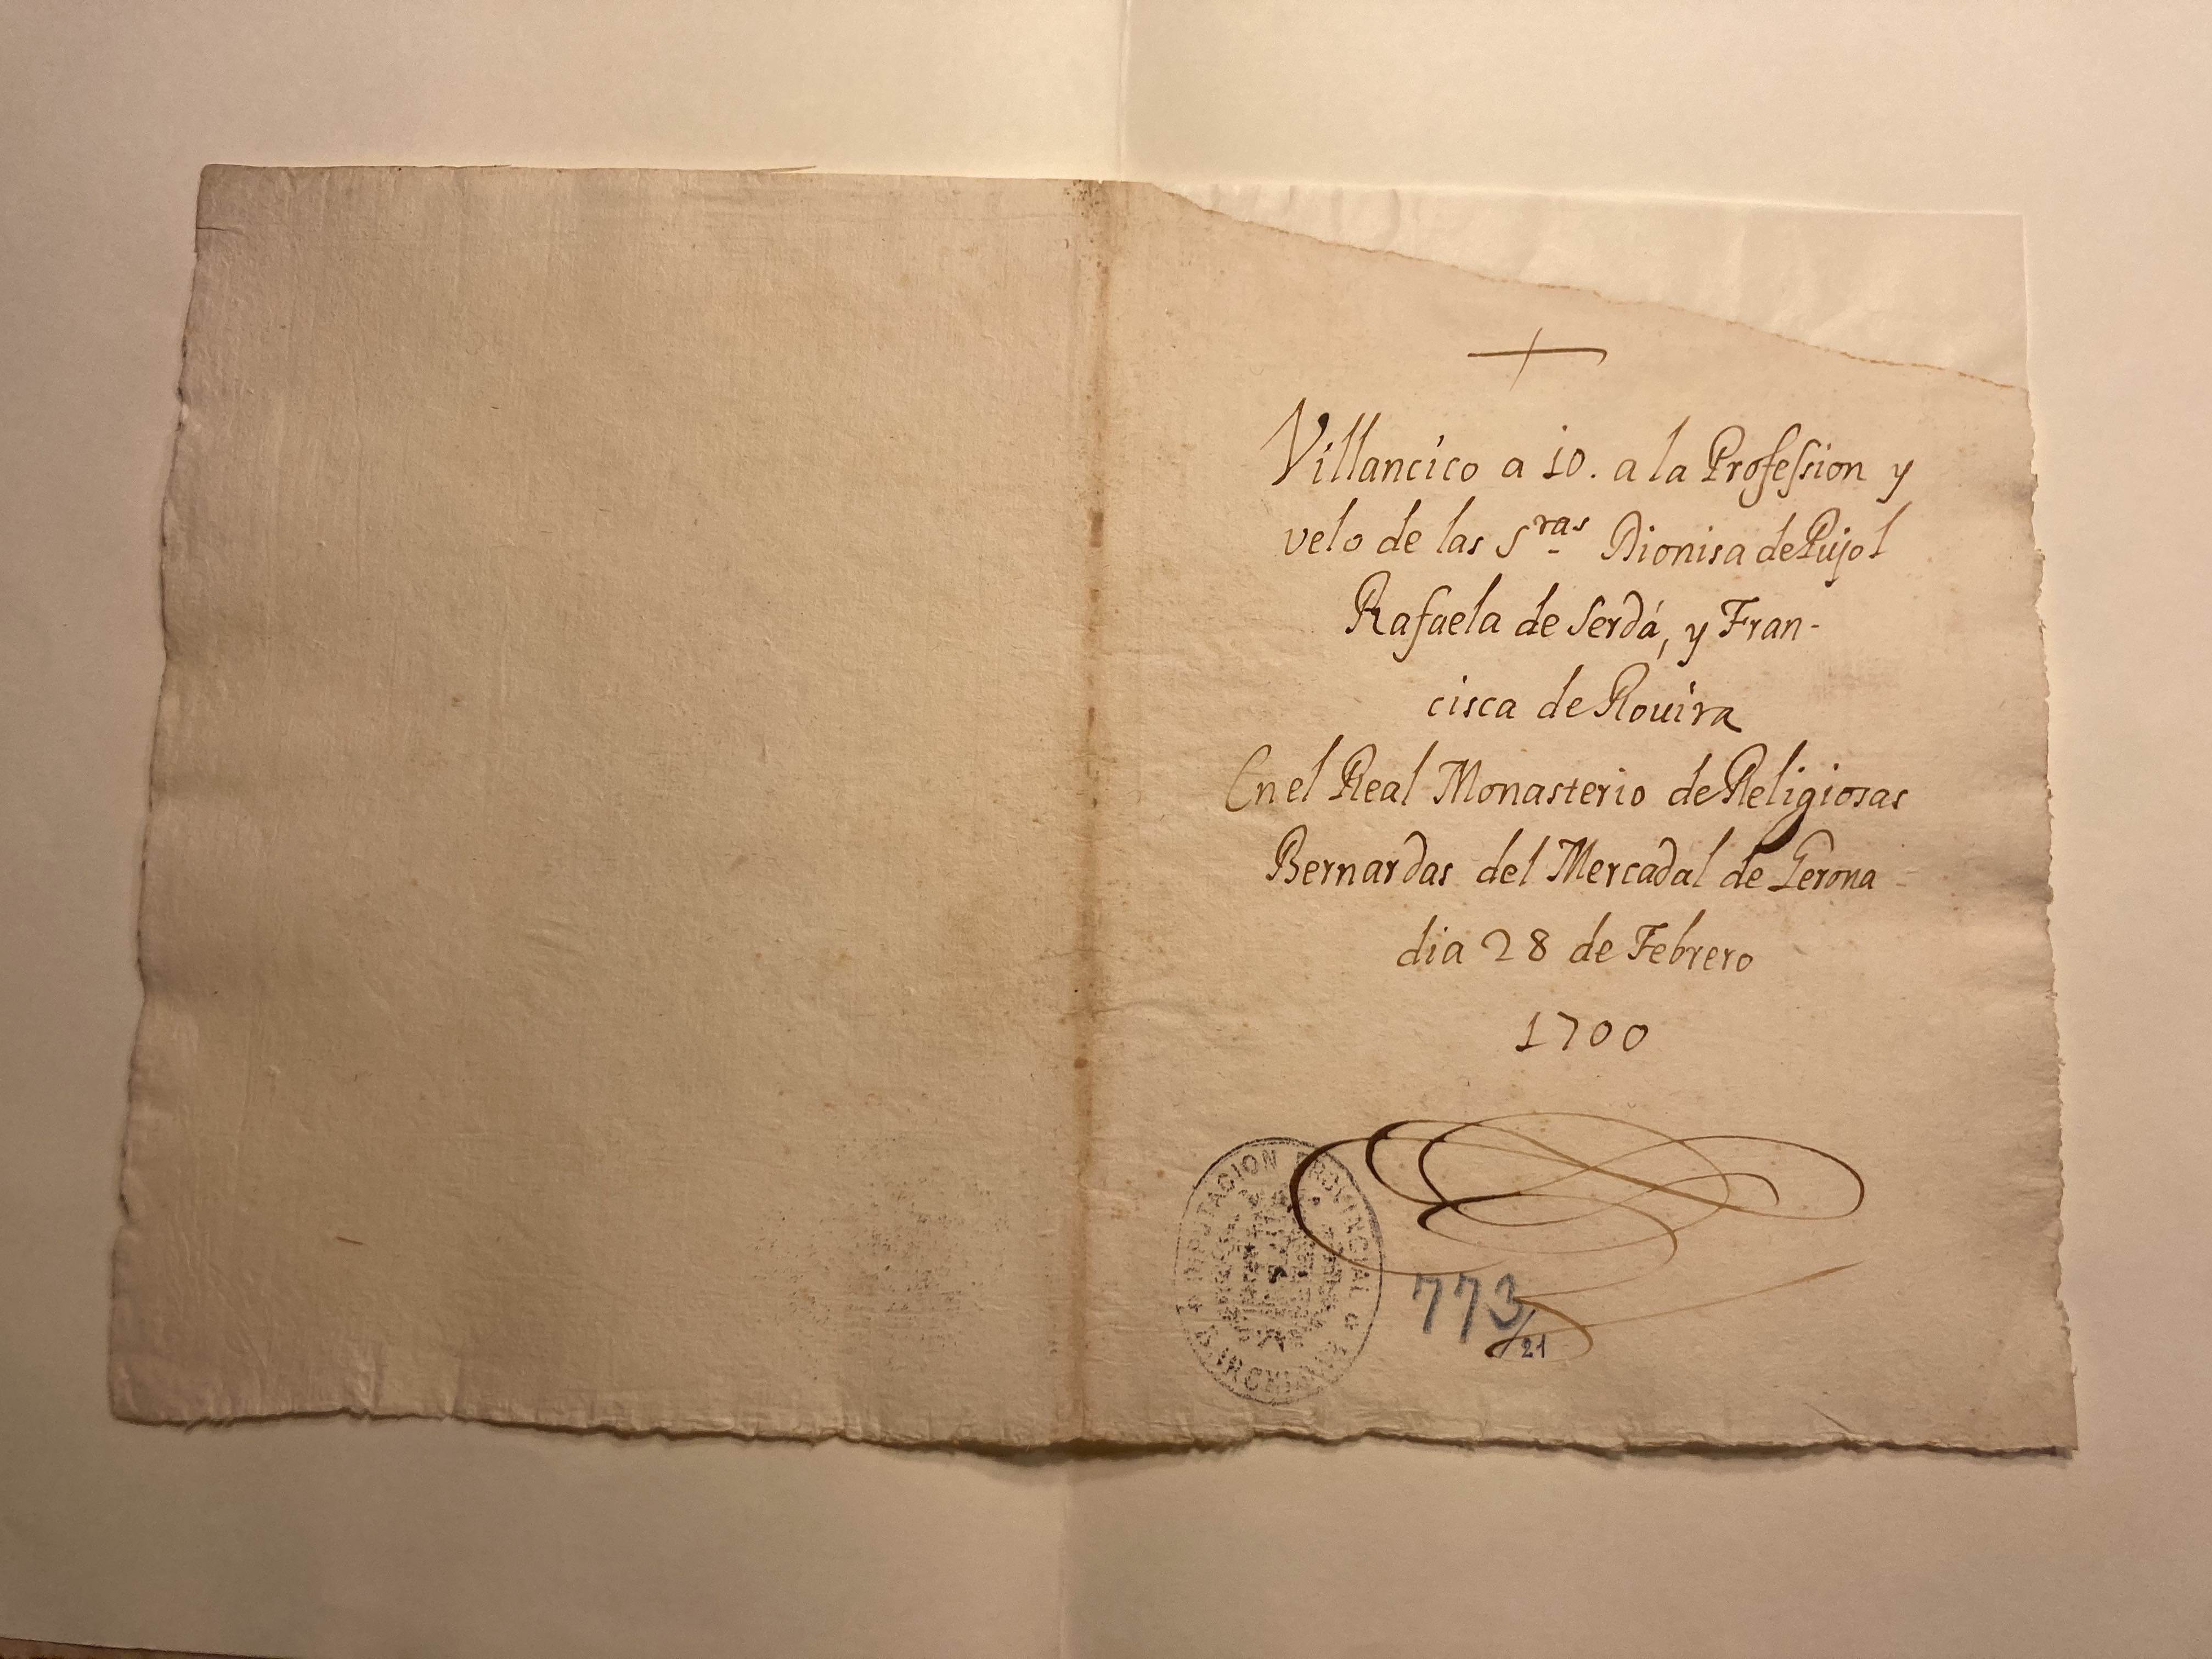 Villancico a 10. a la Profession y
velo de las Sras Dionisa de Pujol
Rafaela de Serdá, y Fran-
cisca de Rouira
En el Real Monasterio de Religiosas
Bernardas del Mercadal de Gerona
dia 28 de Febrero
1700
DIPUTACION PROVINCIAL
773/21